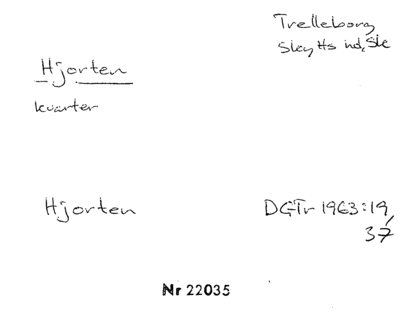 Trelleborg
Skytts hd, Sk
Hjorten
kvarter
Hjorten
DGTr 1963:19,
37
Nr 22035